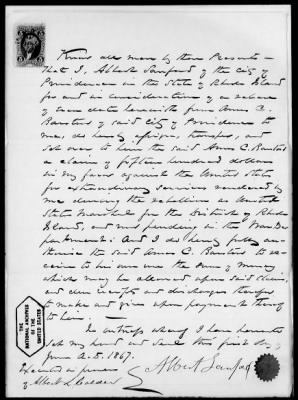 Know all men by these Presents
that I, Albert Sanford of the City of
Providence in the State of Rhode Island
for and in consideration of a release
of even date herewith from Amos C.
Barstow of said City of Providence to
me, do hereby assign, transfer, and
set over to him the said Amos C. Barstow
a claim of fifteen hundred dollars
in my favor against the United States
for extraordinary services rendered by
me during the rebellion as United
States Marshal for the District of Rhode
Island, and now pending in the War De
partment. And I do hereby fully au-
thorize the said Amos C. Barstow to re-
ceive to his own use the sum of money
which may be allowed upon said claim,
and due receipts and discharges therefor
to make and give upon payment thereof
to him.
In witness whereof I have hereunto
set my hand and seal this first day
June A.D. 1867.
Albert Sanford
Executed in presence
of Albert L. Calder
THE
NATIONAL ARCHIVES
OF THE
UNITED STATES